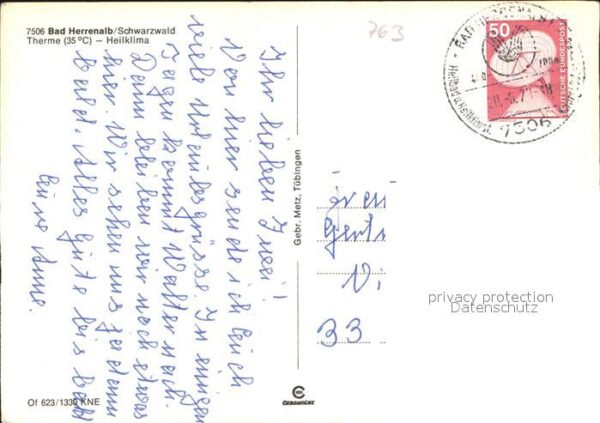 7506 Bad Herrenalb/Schwarzwald
Therme (35 °C) — Heilklima
763
Ihr lieben Zwei!
Von hier sende ich Euch
viele Urlaubsgrüsse. In einigen
Tagen kommt Walter nach.
Dann bleiben wir noch etwas
hier. Wir sehen uns ja dann
bald. Alles Gute bis bald
Eure Anne.
Gebr. Metz, Tübingen
Of 623/1330 KNE
CEKROMCHRO
50
DEUTSCHE BUNDESPOST
BAD HERRENALB
7506
33
privacy protection
Datenschutz